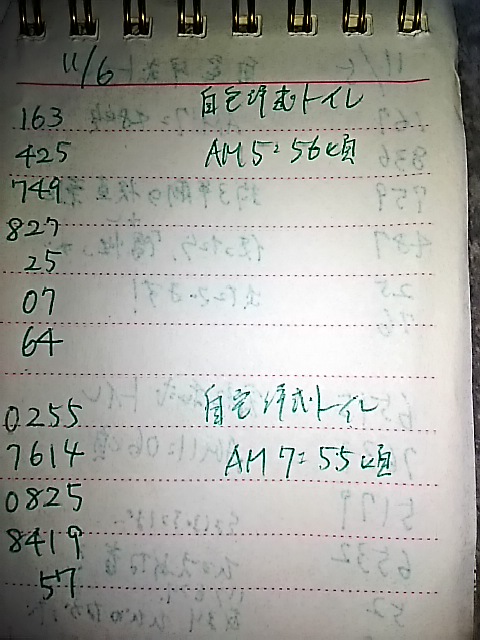 11/6
自宅洋式トイレ
163
425 AM5:56頃
749
827
25
07
64
0255 自宅洋式トイレ
7614 AM7:55頃
0825
8419
57